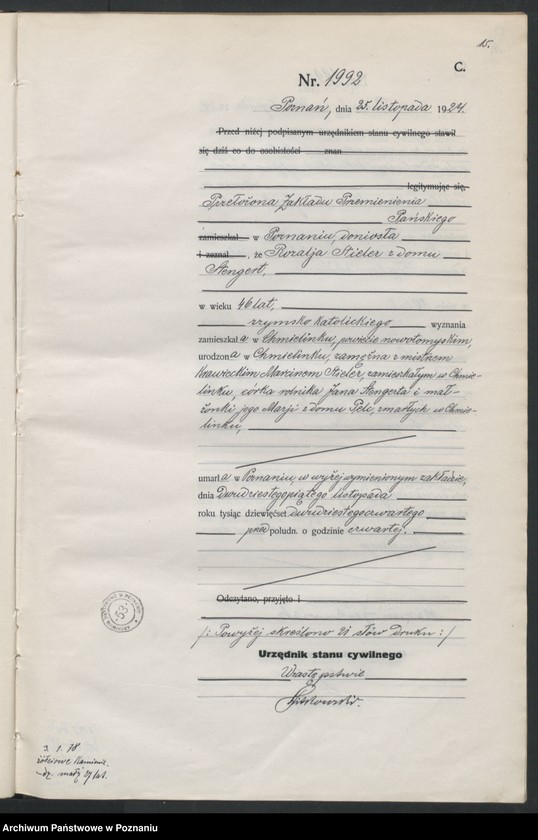 15.
C.
Nr. 1992
Poznań, dnia 25. listopada 1924.
Przed niżej podpisanym urzędnikiem stanu cywilnego stawił
się dziś co do osobistości znan
legitymując się,
Przełożona Zakładu Przemienienia
Pańskiego
zamieszkał w Poznaniu, doniosła
i zeznał, że Rozalja Stieler z domu
Stengert,
w wieku 46 lat,
rzymsko katolickiego wyznania
zamieszkała w Chmielinku, powiecie nowotomyskim,
urodzona w Chmielinku, zamężna z mistrzem
krawieckim Marcinem Stieler, zamieszkałym w Chmie-
linku, córka rolnika Jana Stengerta i mał-
żonki jego Marji z domu Pelc, zmarłych w Chmie-
linku,
umarła w Poznaniu, w wyżej wymienionym zakładzie,
dnia Dwudziestegopiątego listopada
roku tysiąc dziewięćset dwudziestegoczwartego
przed połudn. o godzinie czwartej.
Odczytano, przyjęto i
/: Powyżej skreślono 20 słów druku :/
Urzędnik stanu cywilnego
W zastępstwie
53
3. 1. 78
żółciowe kamienie.
mąż lat.
Archiwum Państwowe w Poznaniu